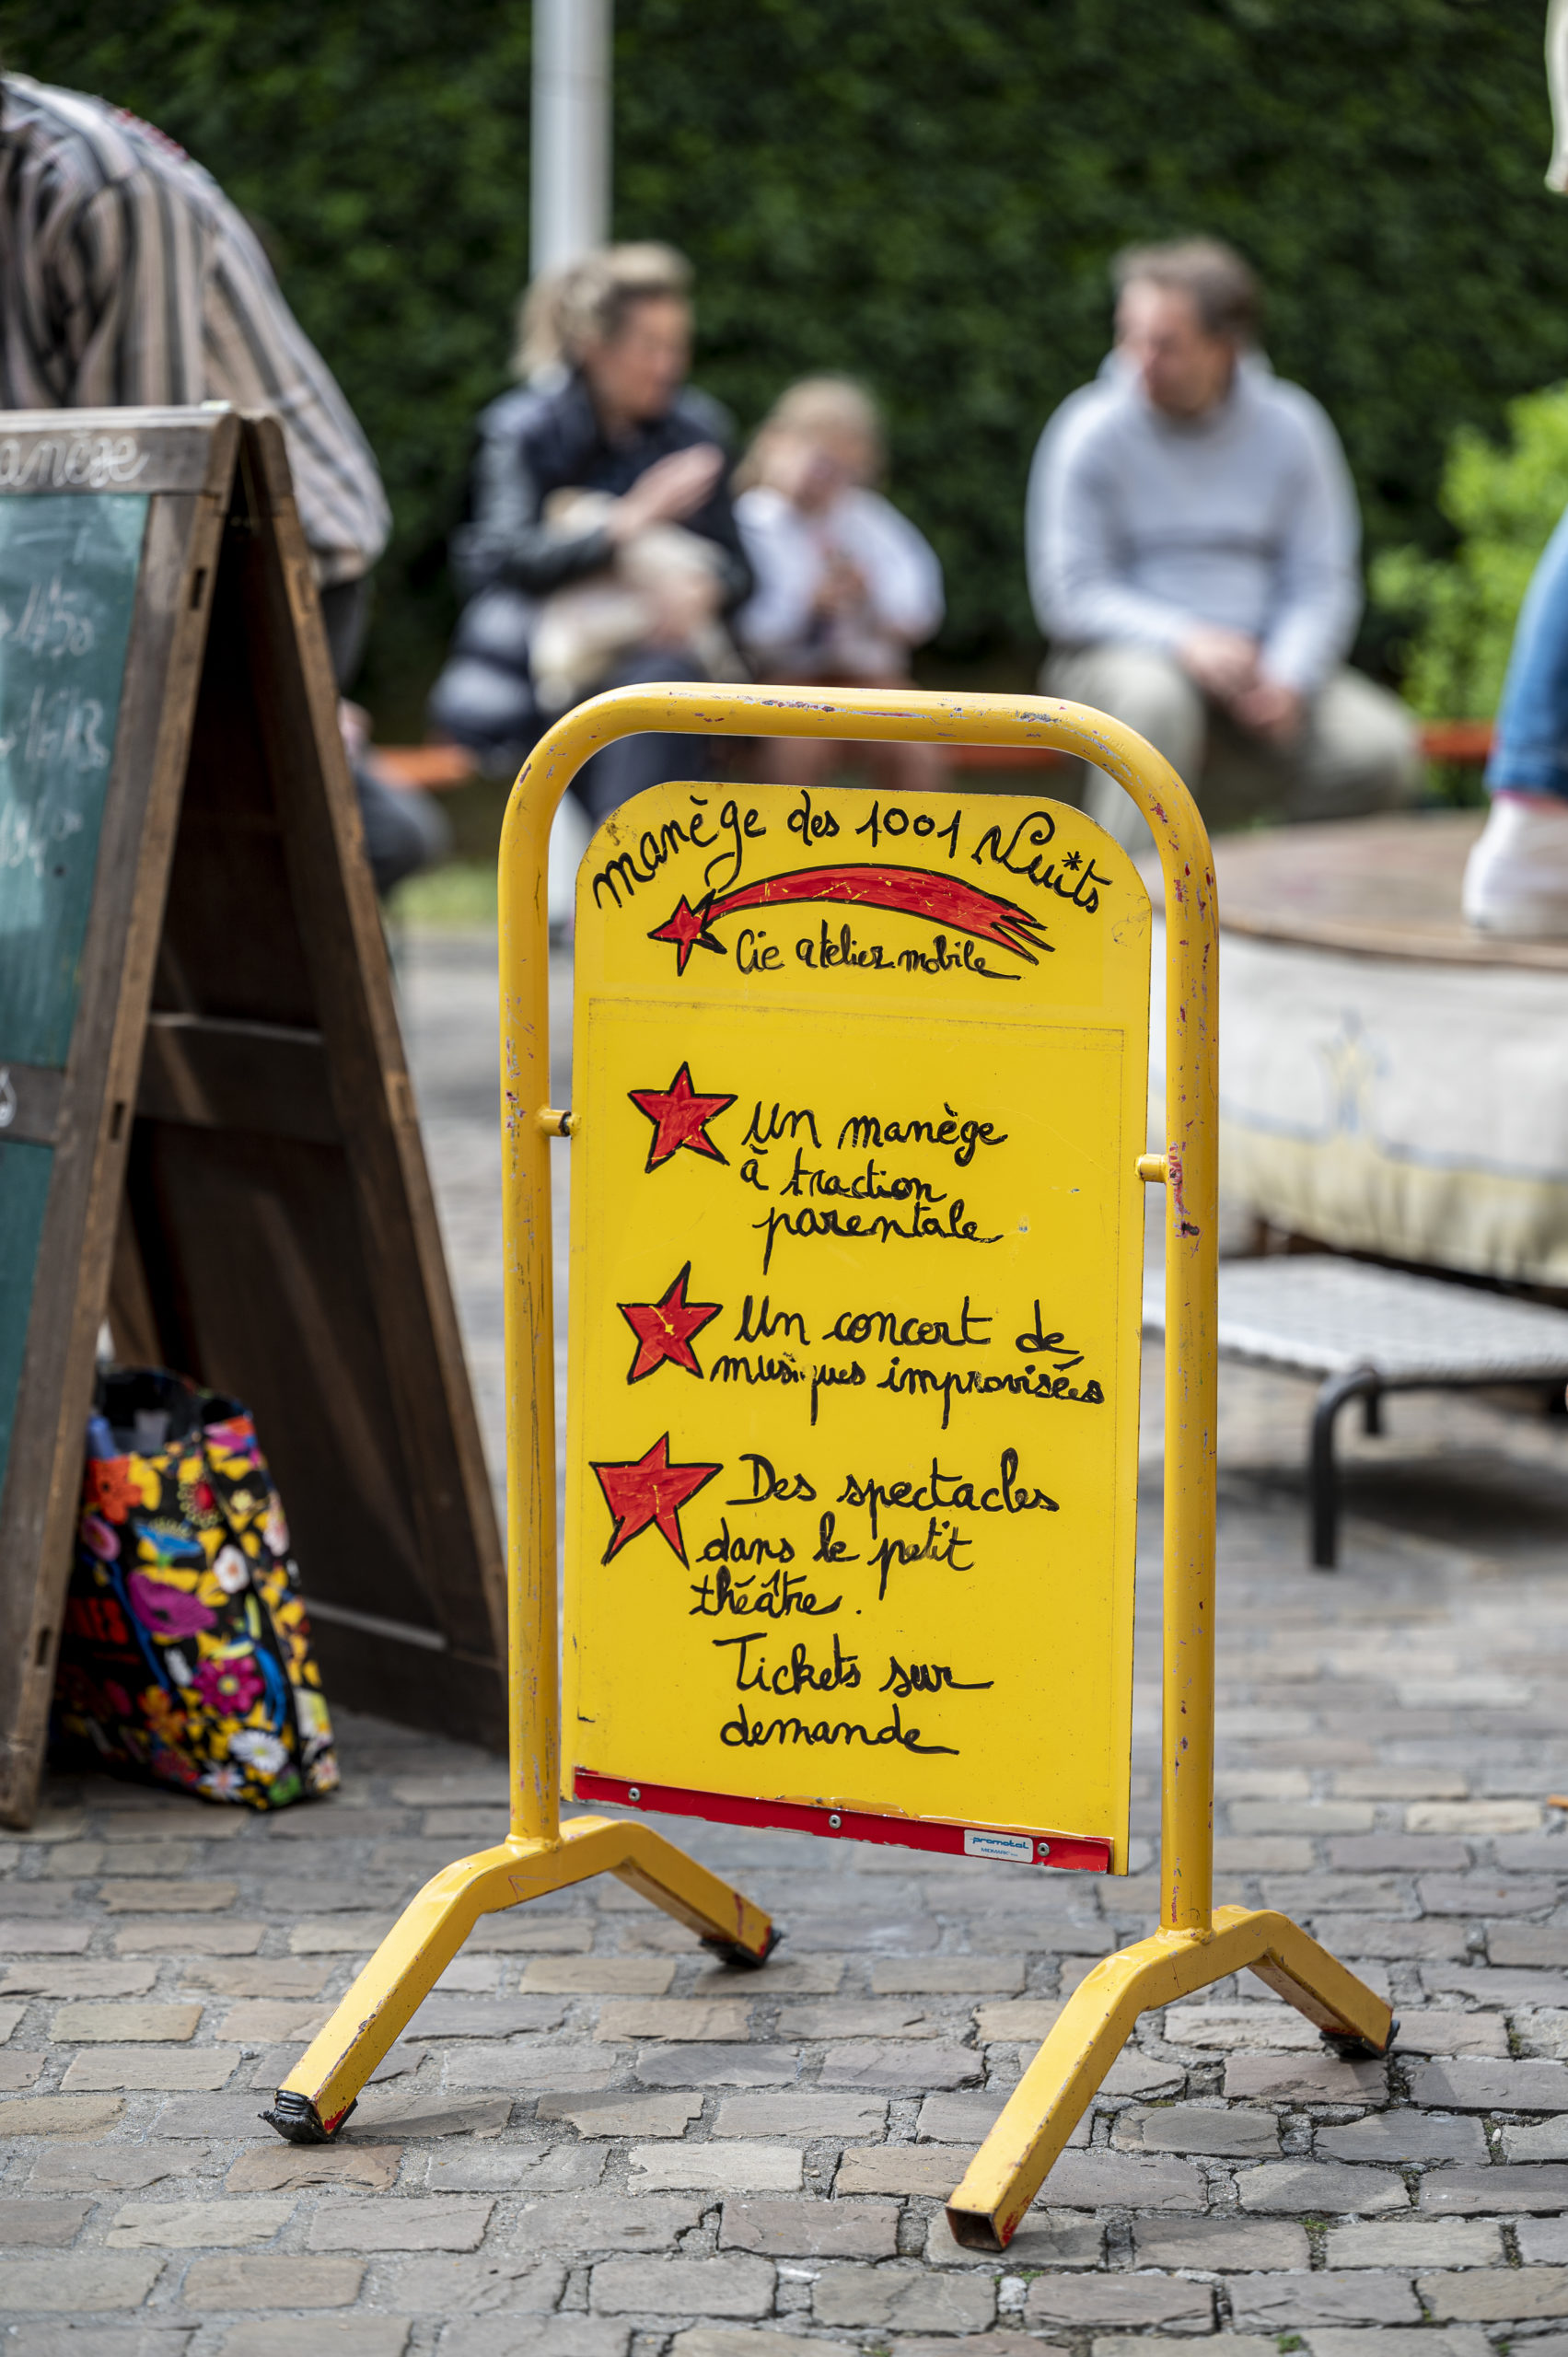 manège des 1001 Nuits
Cie atelier mobile
Un manège
à traction
parentale
Un concert de
musiques improvisées
Des spectacles
dans le petit
théâtre.
Tickets sur
demande
promotal